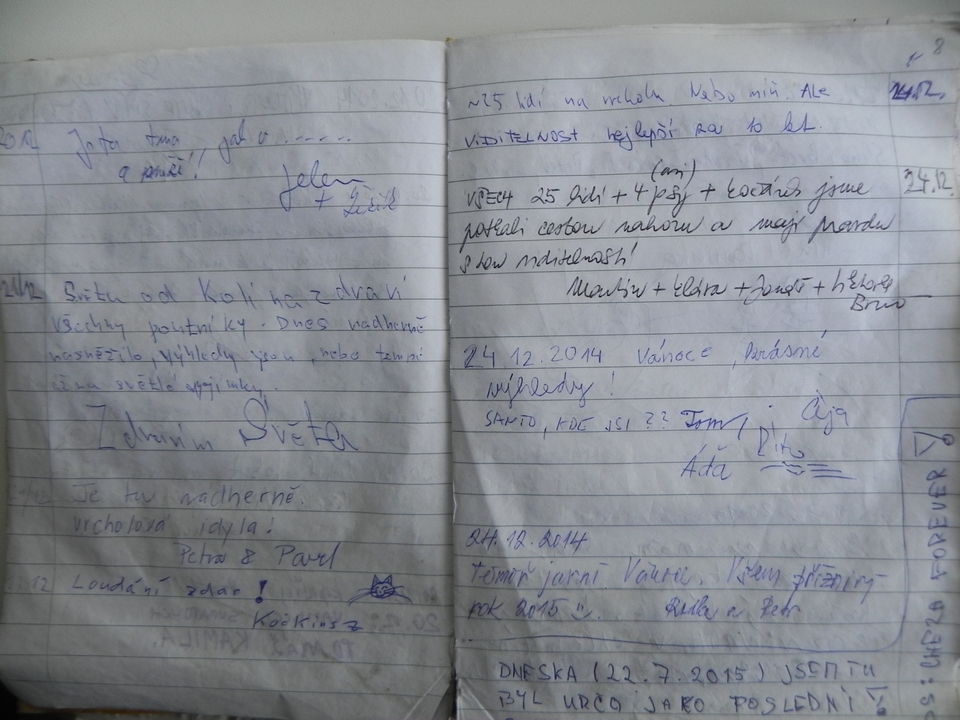 2012
Je ta tma jak v ......
a prší!
Jelen
+
21.12
Světu od Kolína zdraví
všechny poutníky. Dnes nádherně
nasněžilo, výhledy jsou, nebo
až na světlé vyjímky.
Zdravím Světa
Je tu nádherně.
vrcholová idyla!
Petra & Pavel
12 Loudání zdar!
Kočkinsz
TOMÁŠ KAMILA
8
~25 lidí na vrcholu. Nebo míň. Ale
24.12.
VIDITELNOST nejlepší za 10 let.
(asi)
VŠECH 25 lidí + 4 psy + kočárek jsme
24.12.
potkali cestou nahoru a mají pravdu
s tou viditelností!
Martin + Klára + Jonáš +
Brno
24.12.2014 Vánoce, krásné
výhledy!
SANTO, KDE JSI?? Tom
Ája
Rito
Áďa
24.12.2014
Téměř jarní Vánoce. Všem příznivý
rok 2015 Petr
DNESKA (22.7.2015) JSEM TU
BYL URČO JAKO POSLEDNÍ
FOREVER